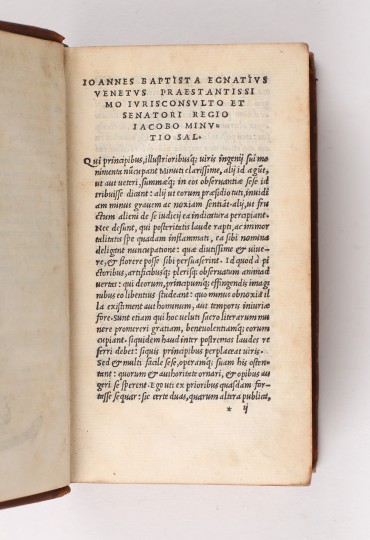 IOANNES BAPTISTA EGNATIVS
VENETVS PRAESTANTISSI
MO IVRISCONSVLTO ET
SENATORI REGIO
IACOBO MINV-
TIO SAL.
Qui principibus, illustribusq; uiris ingenij sui mo
nimenta nūcupant Minuti clarissime, alij id agūt,
ut aut ueteri, summaq; in eos obseruantiæ sese id
tribuisse dicant: alij ut eorum præsidio tuti, inuidi
am minus grauem ac noxiam sentiāt. alij, ut fru
ctum alieni de se iudicij ea indicatura percipiant.
Nec desunt, qui posteritatis laude rapti, ac immor
talitatis spe quadam inflammati, ea sibi nomina
deligant nuncupatione: quæ diutissime & uiue-
re, & florere posse sibi persuaserint. Id quod à pi
ctoribus, artificibusq; plerisq; obseruatum animad
uerto: qui deorum, principumq; effingendis imagi
nibus eo libentius student: quo minus obnoxia il
la existiment aut hominum, aut temporis iniuriæ
fore. Sunt etiam qui hoc ueluti sacro literarum mu
nere promereri gratiam, beneuolentiamq; eorum
cupiant. siquidem haud inter postremas laudes re
ferri debet: siquis principibus perplaceat uiris.
Sed & multi facile sese, operamq; suam his osten
tant: quorum & authoritate ornari, & opibus au
geri se sperent. Ego uti ex prioribus quasdam for-
tasse sequar: sic certe duas, quarum altera publica,
* ij